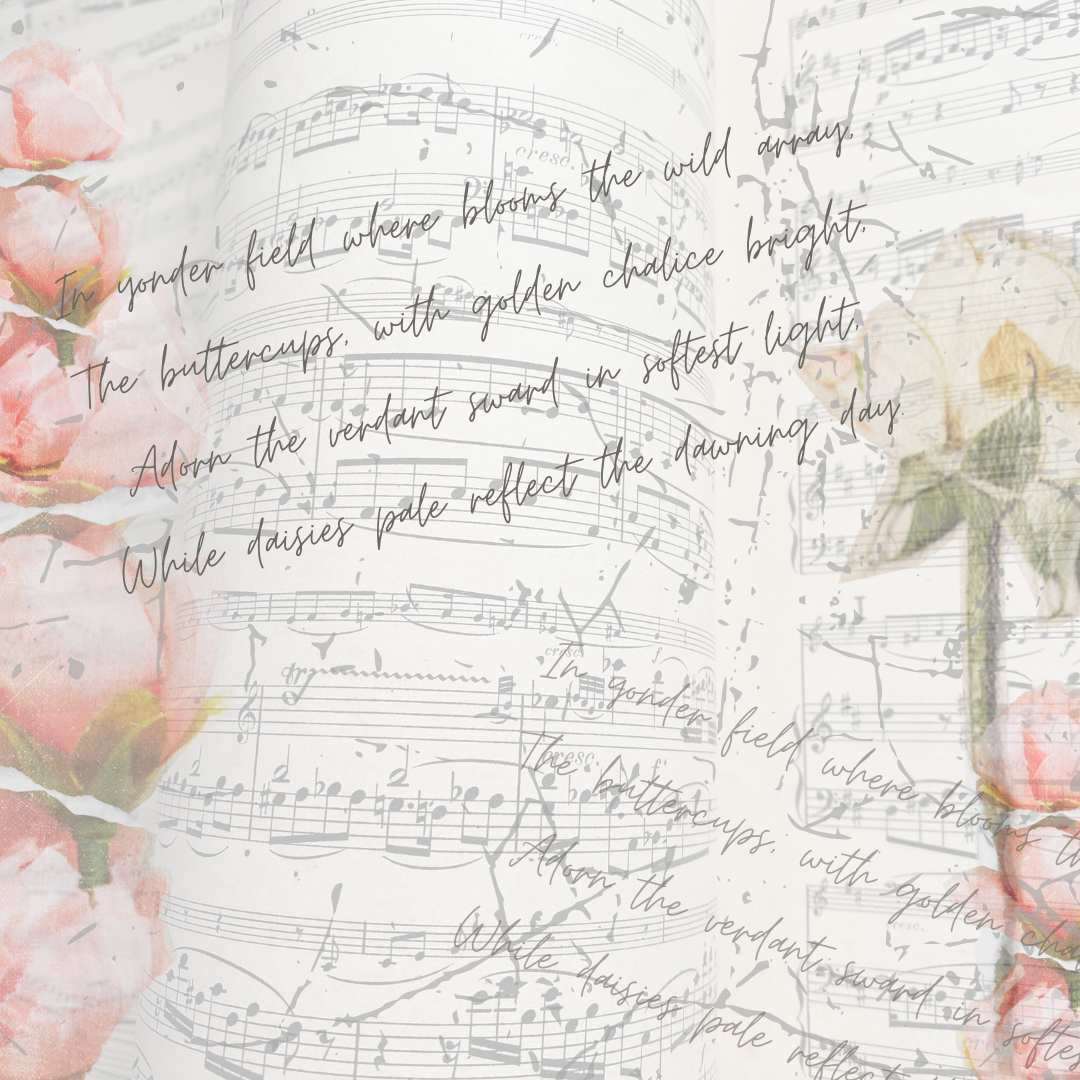 In yonder field where blooms the wild array,
The buttercups, with golden chalice bright,
Adorn the verdant sward in softest light,
While daisies pale reflect the dawning day.
cresc.
cresc.
cresc.
cresc.
In yonder field where blooms th
The buttercups, with golden cha
Adorn the verdant sward in softes
While daisies pale reflect